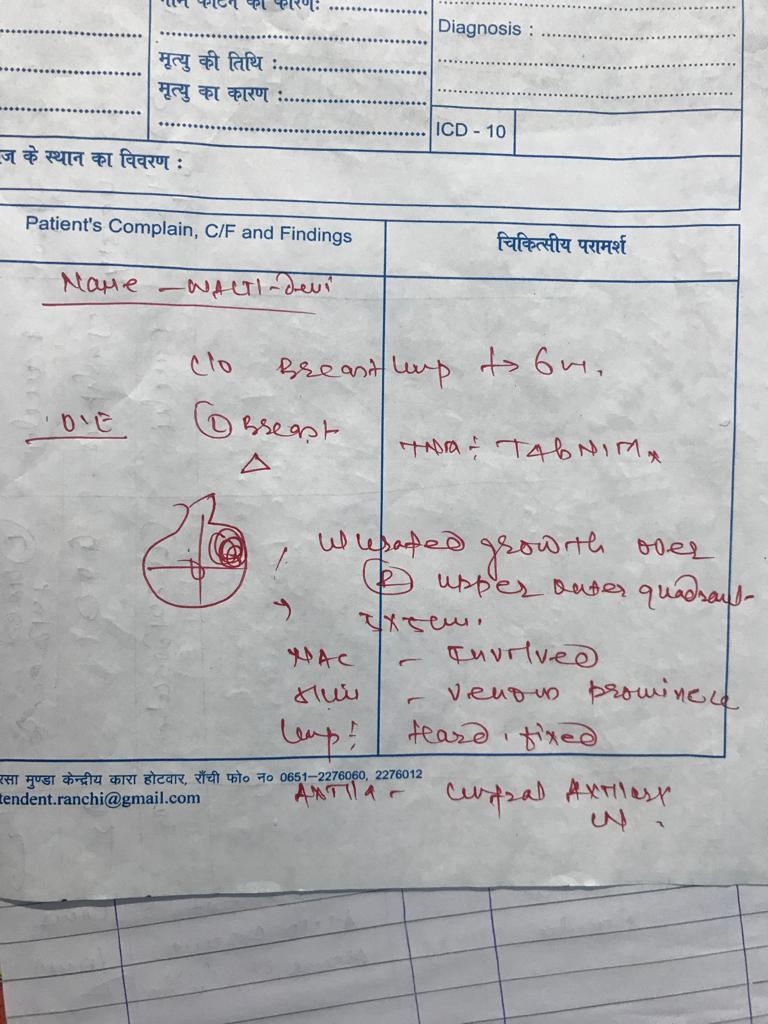 नाम काटने का कारण: ..................
Diagnosis : ..................
मृत्यु की तिथि :..................
मृत्यु का कारण :..................
ICD - 10
ज के स्थान का विवरण :
Patient's Complain, C/F and Findings
चिकित्सीय परामर्श
Name - Devi
C/O Breast lump
O/E Breast
growth over
upper outer quadrant
NAC - Involved
- venous prominence
lump : Hard, fixed
रसा मुण्डा केन्द्रीय कारा होटवार, राँची फो० न० 0651-2276060, 2276012
tendent.ranchi@gmail.com
Axilla - central Axillary
LN.